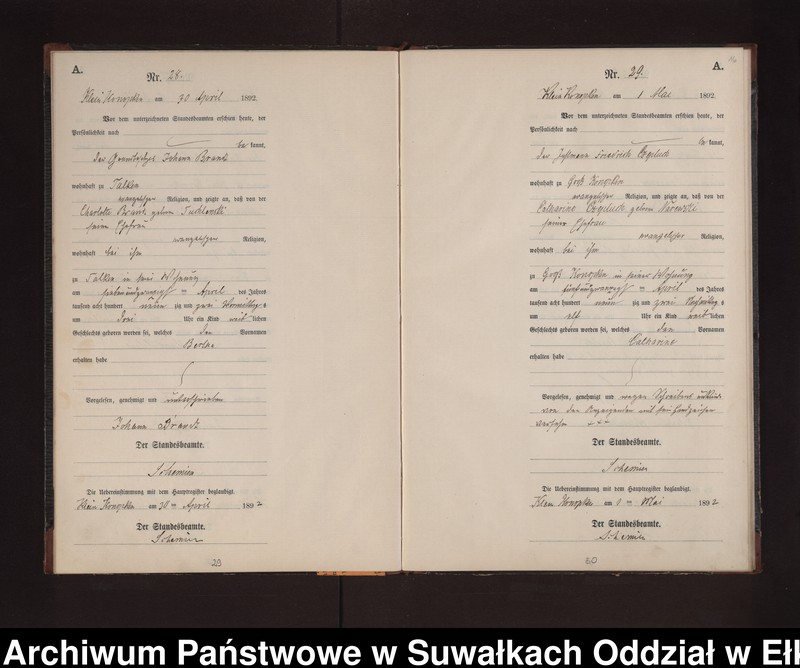 A.
Nr. 28.
Klein Konopka am 30 April 1892
Vor dem unterzeichneten Standesbeamten erschien heute, der
Persönlichkeit nach
be kannt,
der Johann Brandt
wohnhaft zu Talken
evangelischer Religion, und zeigte an, daß von der
Charlotte Brandt geborn
seine Ehefrau
evangelischer Religion,
wohnhaft bei ihm
zu Talken in sein Wohnung
am siebenundzwanzigst en April des Jahres
tausend acht hundert neun zig und zwei Vormittag s
um drei Uhr ein Kind weib lichen
Geschlechts geboren worden sei, welches den Vornamen
Bertha
erhalten habe
Vorgelesen, genehmigt und unterschrieben
Johann Brandt
Der Standesbeamte.
Schemier
Die Uebereinstimmung mit dem Hauptregister beglaubigt.
Klein Konopka am 30 ten April 1892
Der Standesbeamte.
Schemier
28
A.
Nr. 29.
Klein Konopka am 1 Mai 1892
Vor dem unterzeichneten Standesbeamten erschien heute, der
Persönlichkeit nach
be kannt,
der Friedrich
wohnhaft zu Groß Konopka
evangelischer Religion, und zeigte an, daß von der
Catharine geborn
seiner Ehefrau
evangelischer Religion,
wohnhaft bei ihm
zu Groß Konopka in seiner Wohnung
am fünfundzwanzigst en April des Jahres
tausend acht hundert neun zig und zwei Nachmittag s
um elf Uhr ein Kind weib lichen
Geschlechts geboren worden sei, welches den Vornamen
Catharine
erhalten habe
Vorgelesen, genehmigt und wegen Schreibens
von dem Anzeigenden mit dem Handzeichen
versehen +++
Der Standesbeamte.
Schemier
Die Uebereinstimmung mit dem Hauptregister beglaubigt.
Klein Konopka am 1 ten Mai 1892
Der Standesbeamte.
Schemier
30
Archiwum Państwowe w Suwałkach Oddział w Eł